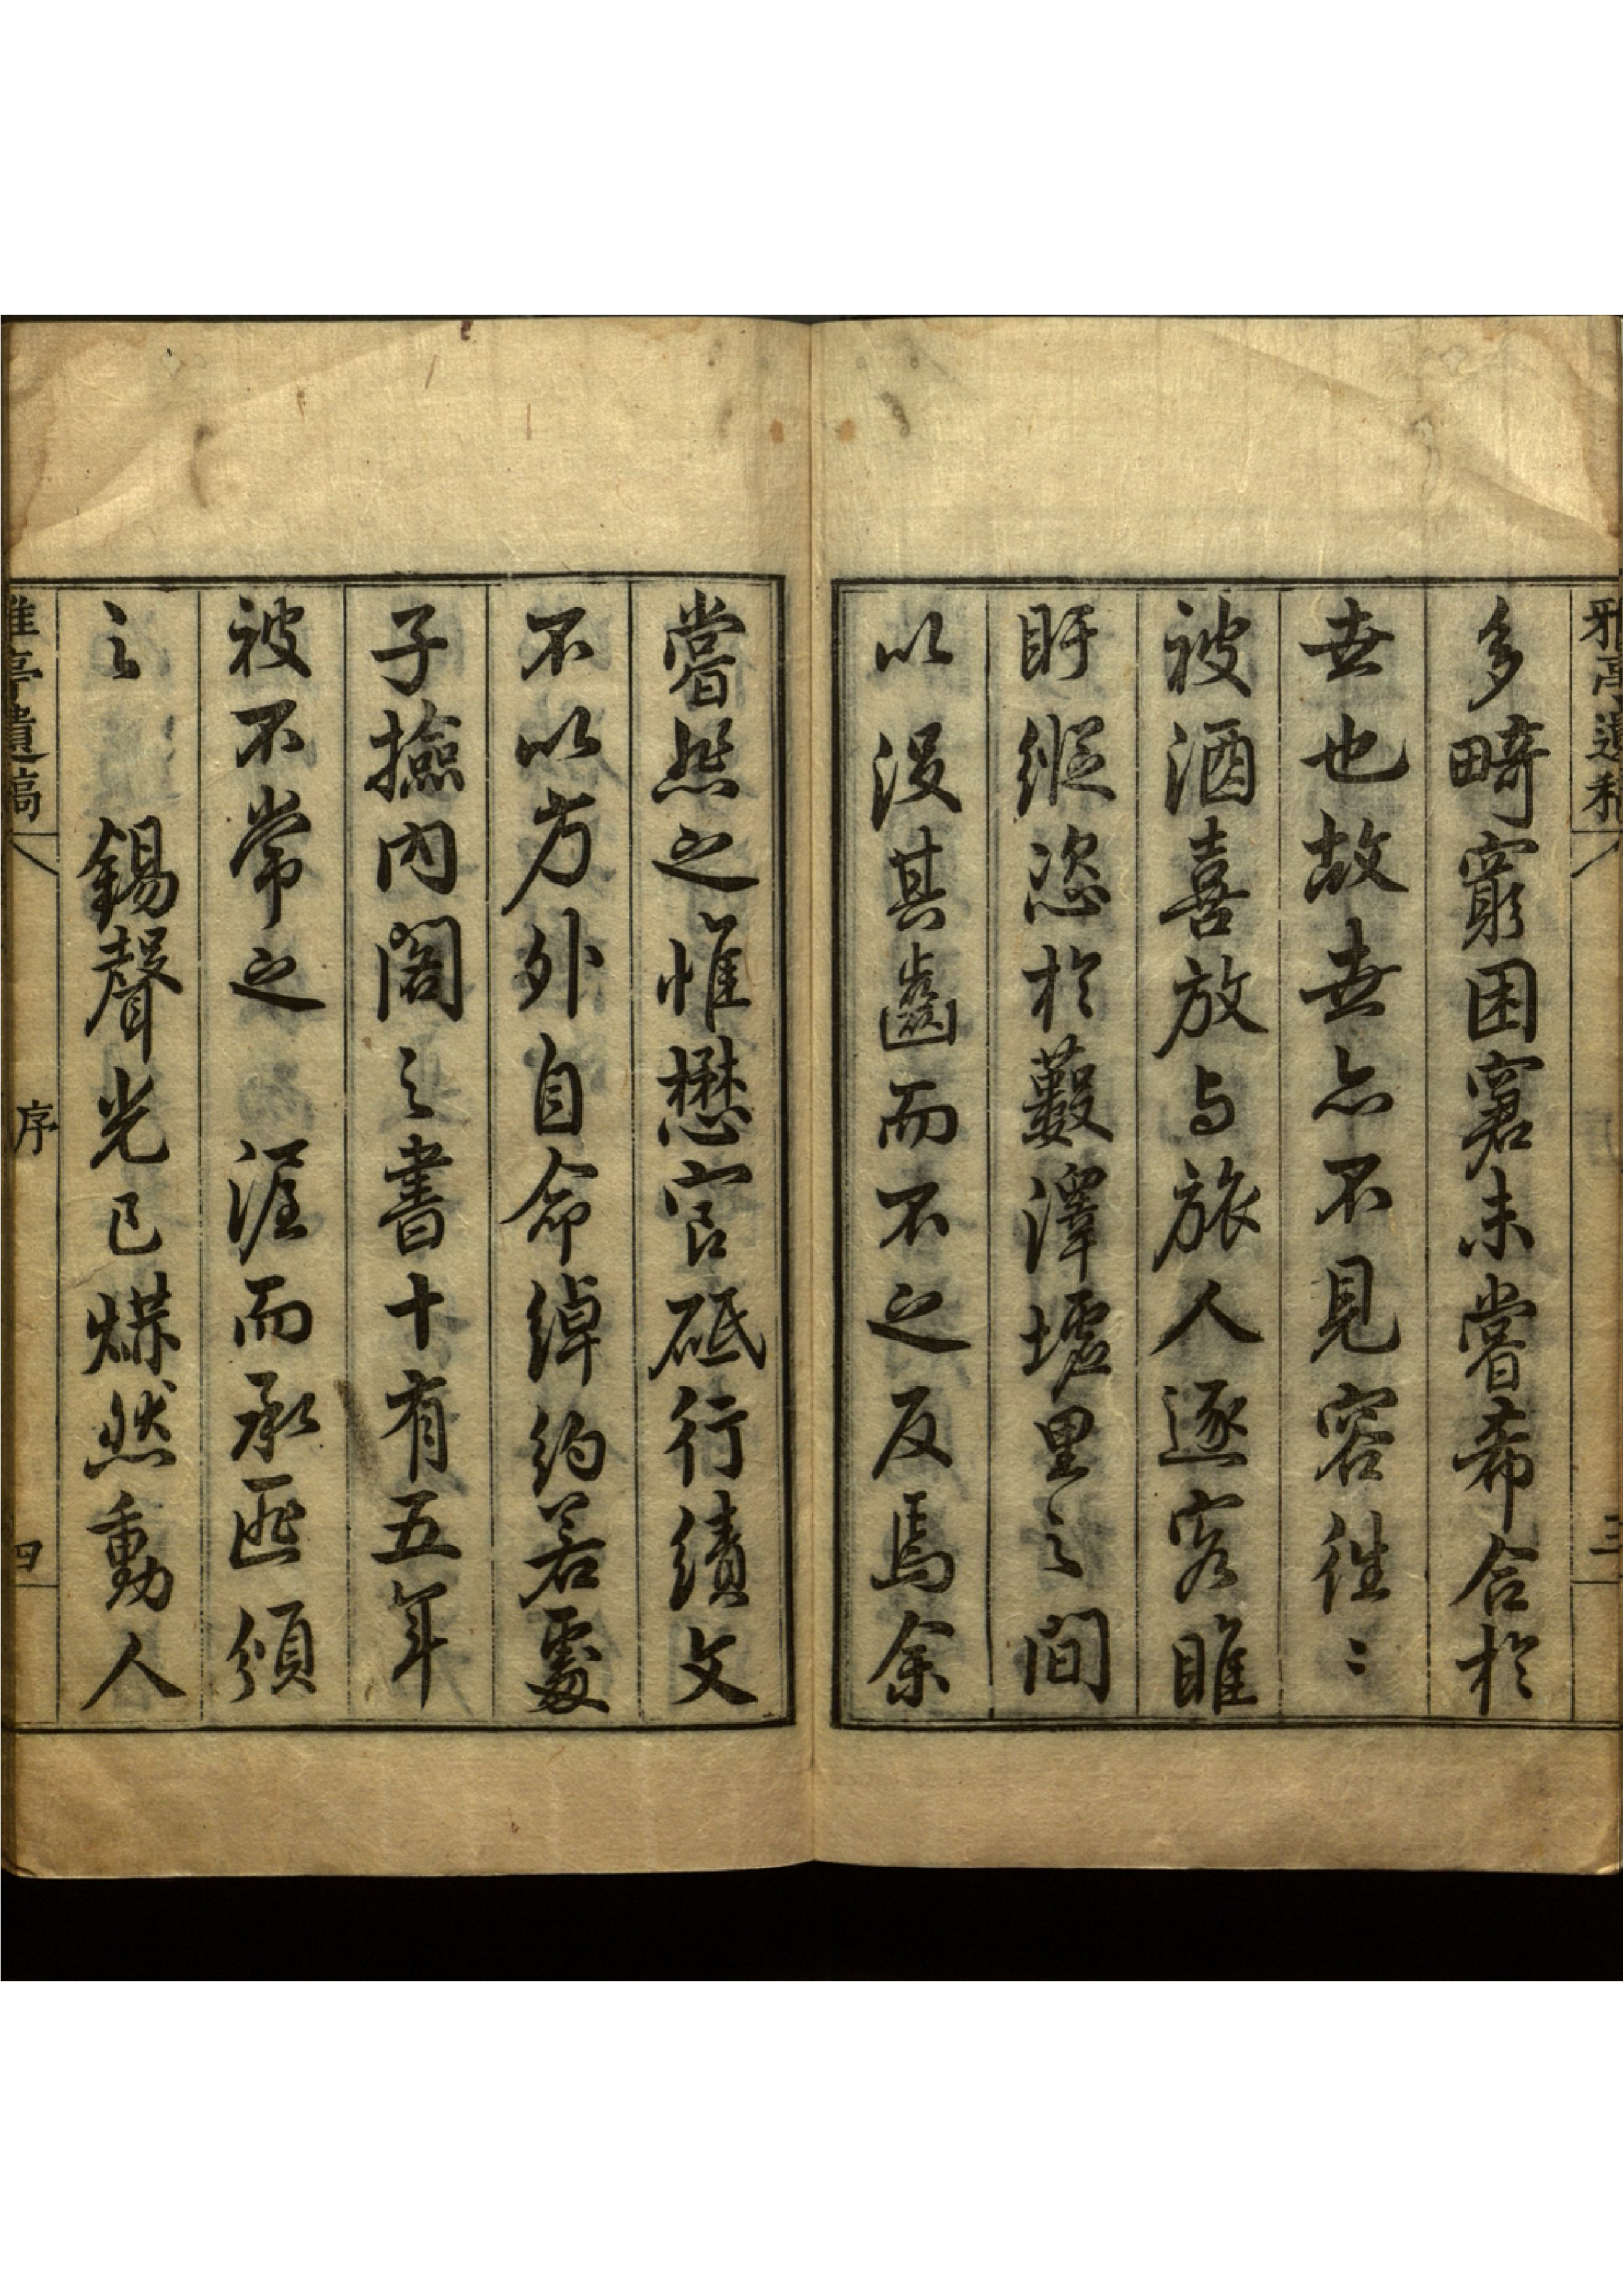 多畸窮困窘未嘗希合於
世也故世亦不見容徃〻
被酒喜放与旅人逐客睢
盱縱恣於藪澤墟里之間
以沒其齒而不之反焉余
嘗悲之惟懋官砥行績文
不以方外自命綽約若處
子撿內閣之書十有五年
被不常之 渥而承匪頒
之 錫聲光已爃然動人
雅亭遺稿 序 四